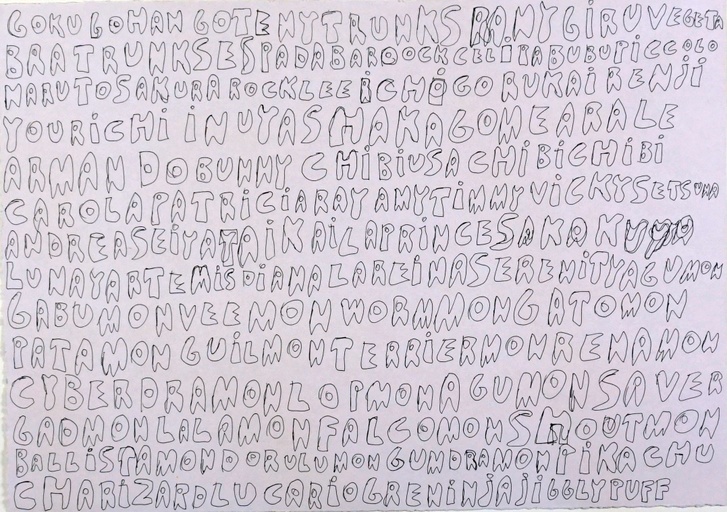 GOKU GOHAN GOTENYTRUNKS RANYGIRUVEGETA
BRATRUNKSESPADABARDOCKCELIPABUBUPICCOLO
NARUTOSAKURAROCKLEEICHIGORUKAIRENJI
YOURICHI INUYASHAKAGOMEARALE
ARMANDOBUNNY CHIBIUSACHIBICHIBI
CAROLAPATRICIARAYAMYTIMMYVICKYSETSUNA
ANDREASEIYATAIKAILAPRINCESAKAKUYUA
LUNAYARTEMISDIANALAREINASERENITYAGUMON
GABUMONVEEMONWORMMONGATOMON
PATAMON GUILMONTERRIERMONRENAMON
CYBERDRAMONLOPMONAGUMONSAVER
GAOMONLALAMONFALCOMONSHOUTMON
BALLISTAMONDORULUMONGUMDRAMONPIKACHU
CHARIZARDLUCARIOGRENINJAJIGGLYPUFF